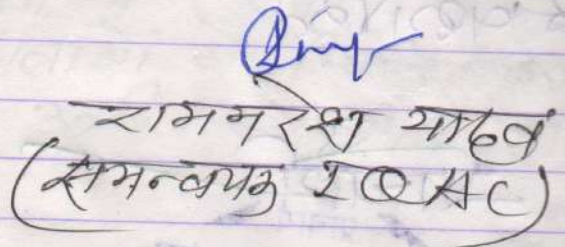 रामनरेश यादव
(समन्वयक IQAC)